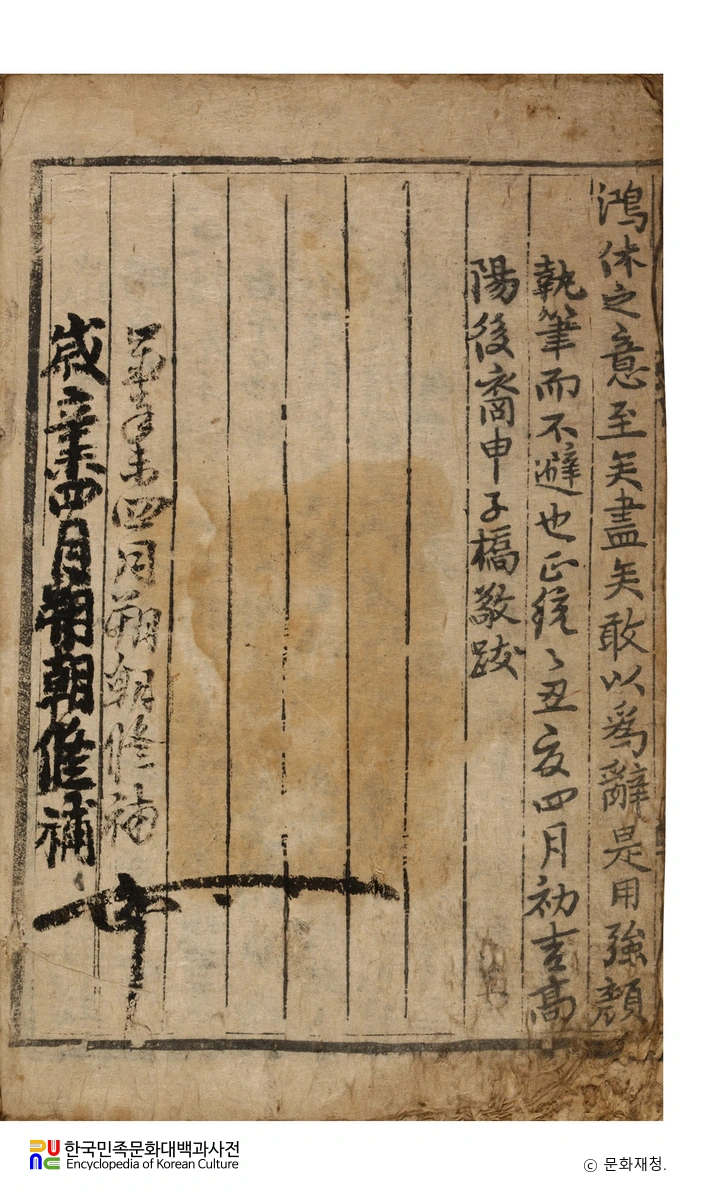 鴻休之意至矣盡矣敢以爲辭是用強顔
執筆而不避也正統乙丑夏四月初吉高
陽後裔申子橋敬跋
辛未四月朔朝修補
歲辛未四月朔朝修補
한국민족문화대백과사전
Encyclopedia of Korean Culture
ⓒ 문화재청.